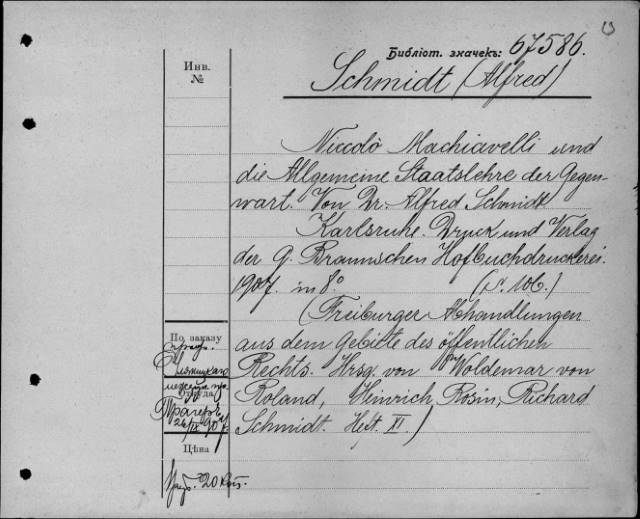 Библіот. значекъ: 67586.
Schmidt (Alfred)
Инв.
№
Niccolò Machiavelli und
die Allgemeine Staatslehre der Gegen-
wart. Von Dr. Alfred Schmidt
Karlsruhe. Druck und Verlag
der G. Braunschen Hofbuchdruckerei.
1907. in 8° (S. 106.)
(Freiburger Abhandlungen
aus dem Gebiete des öffentlichen
Rechts. Hrsg. von Woldemar von
Roland, Heinrich Rosin, Richard
Schmidt. Heft XI.)
По заказу
Откуда
Трагеръ
24/IX 907
Цѣна
20 коп.